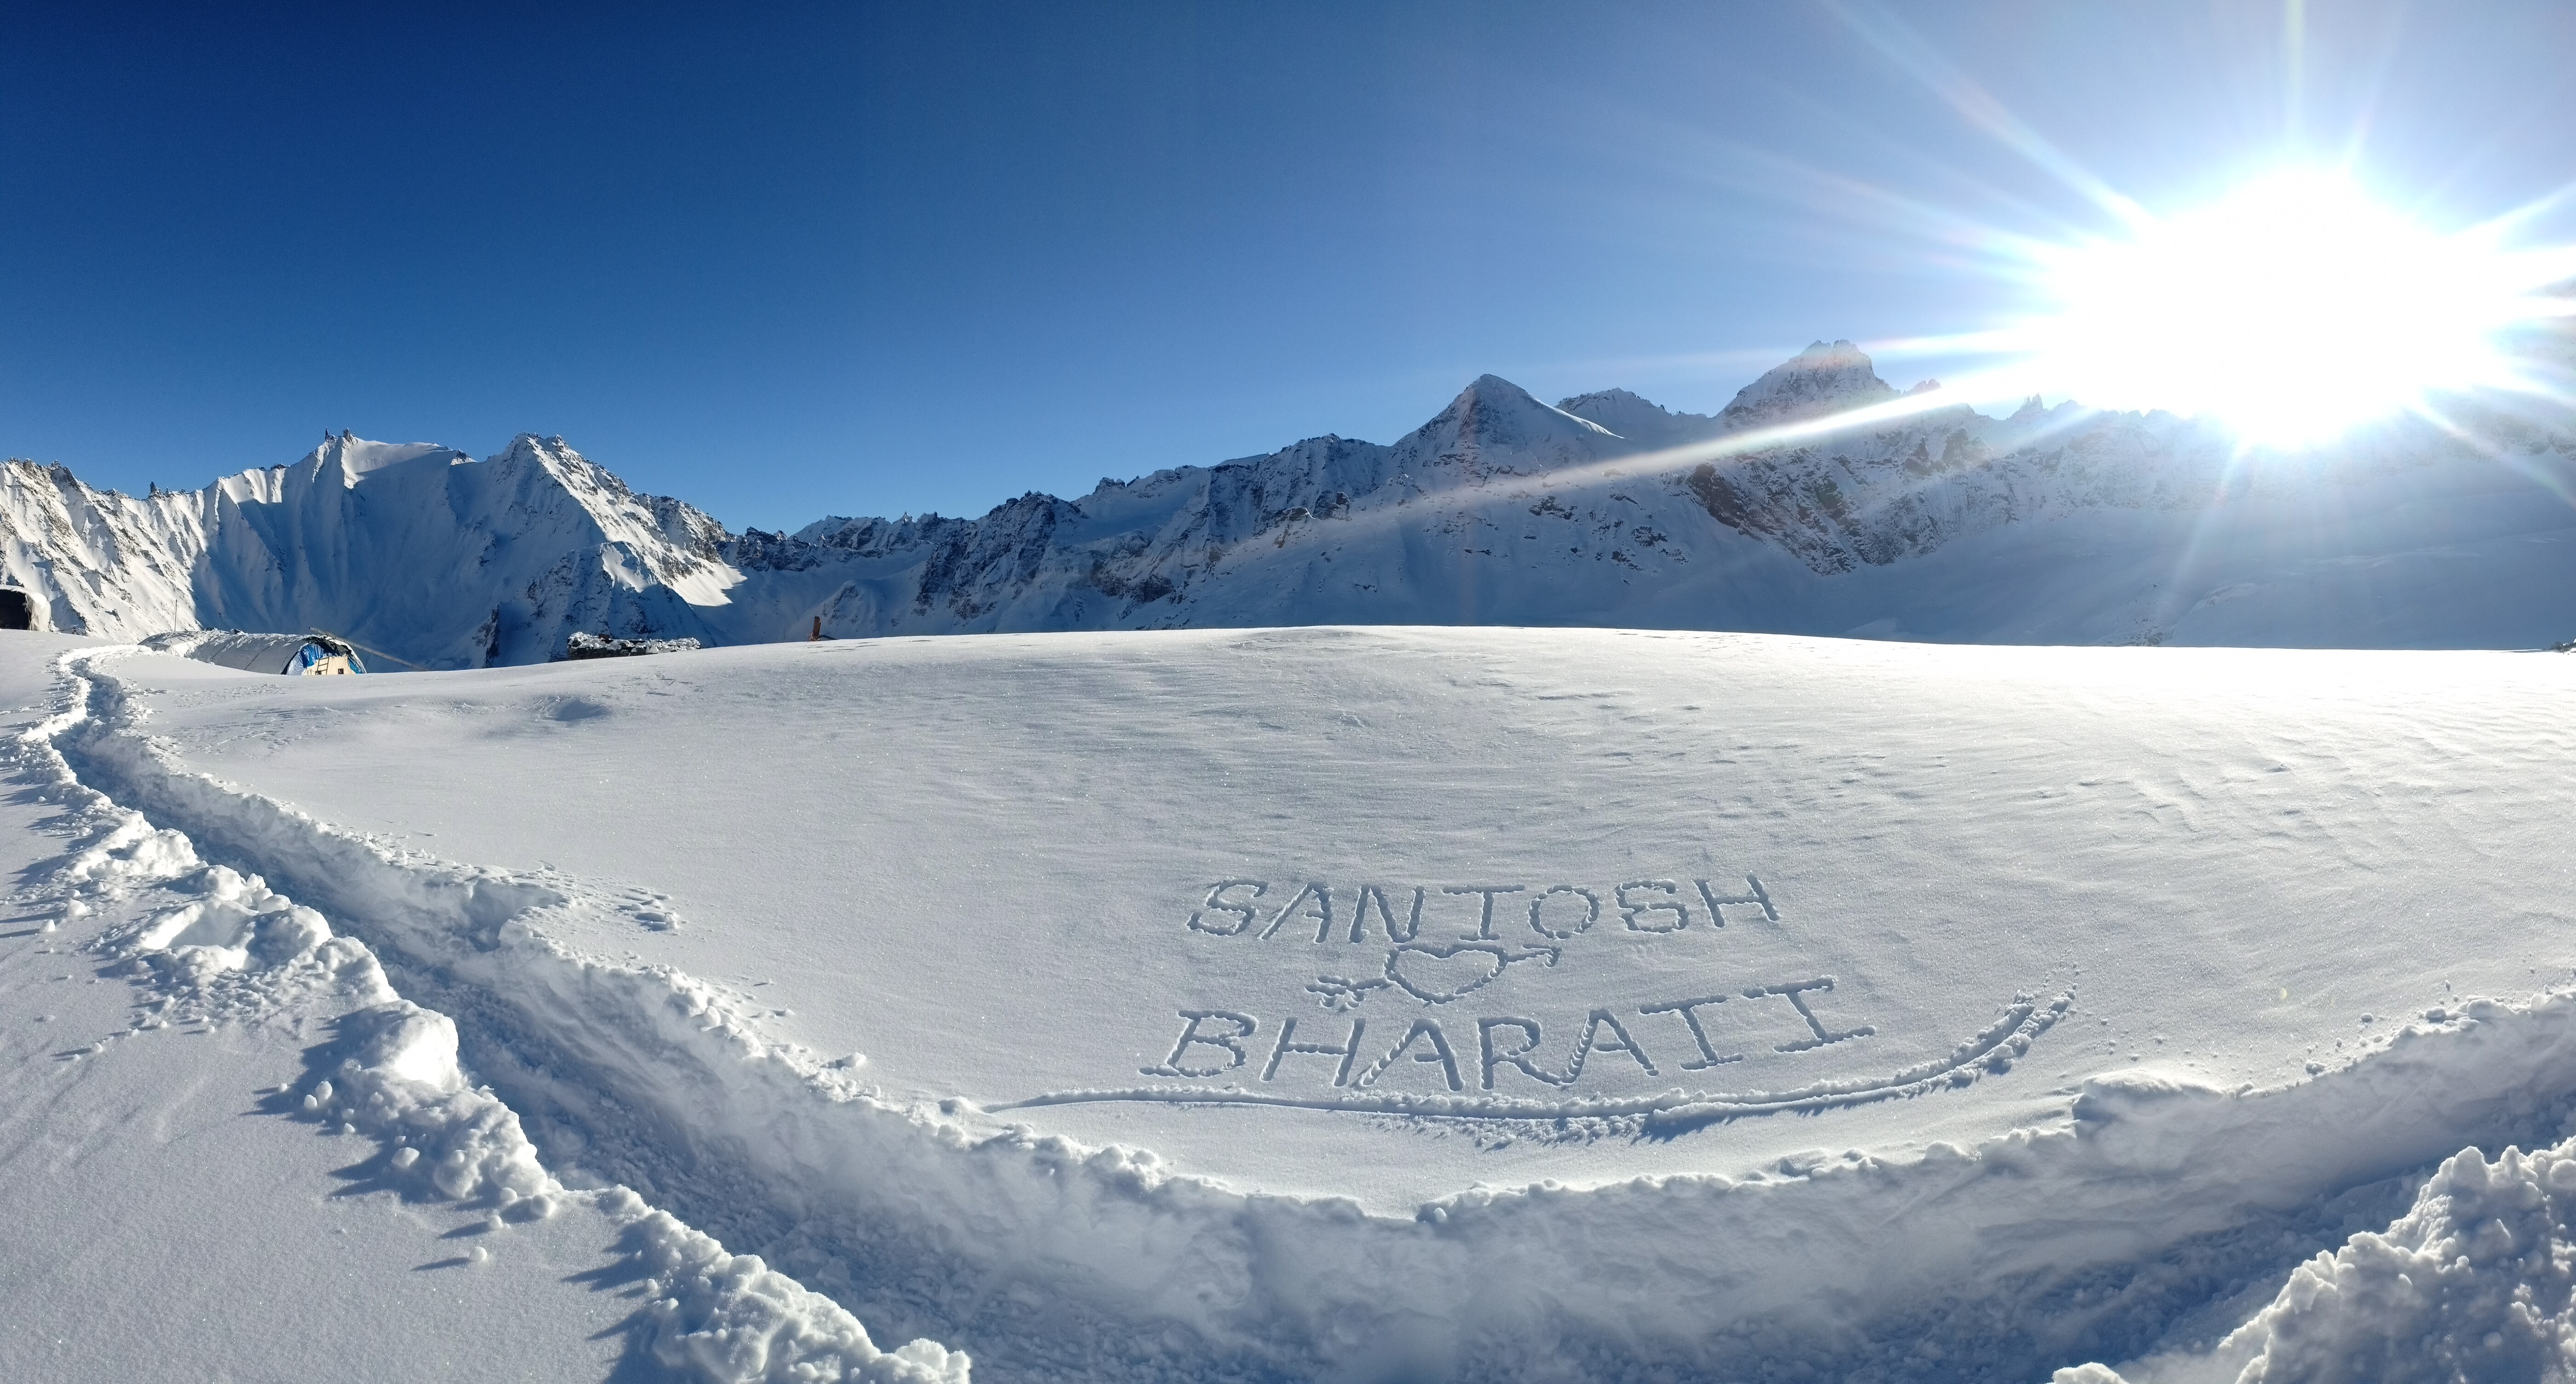 SANTOSH
BHARATI